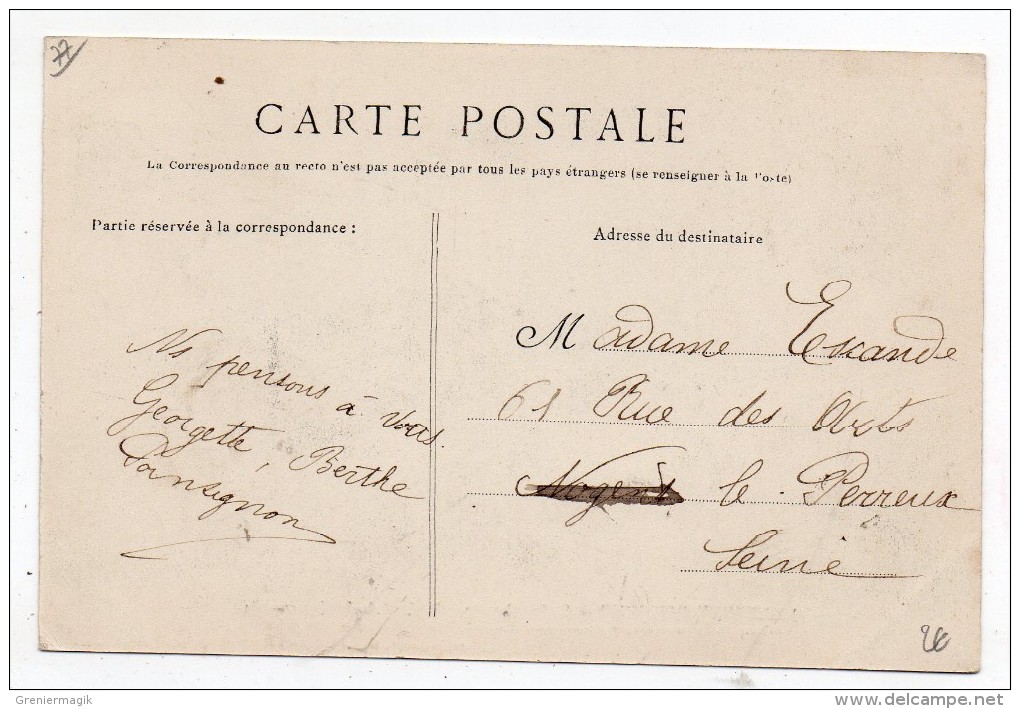 77
CARTE POSTALE
La Correspondance au recto n'est pas acceptée par tous les pays étrangers (se renseigner à la Poste)
Partie réservée à la correspondance :
Ns pensons à vous.
Georgette, Berthe
Adresse du destinataire
Madame Escande
61 Rue des Arts
Nogent le Perreux
Seine
Greniermagik
www.delcampe.net